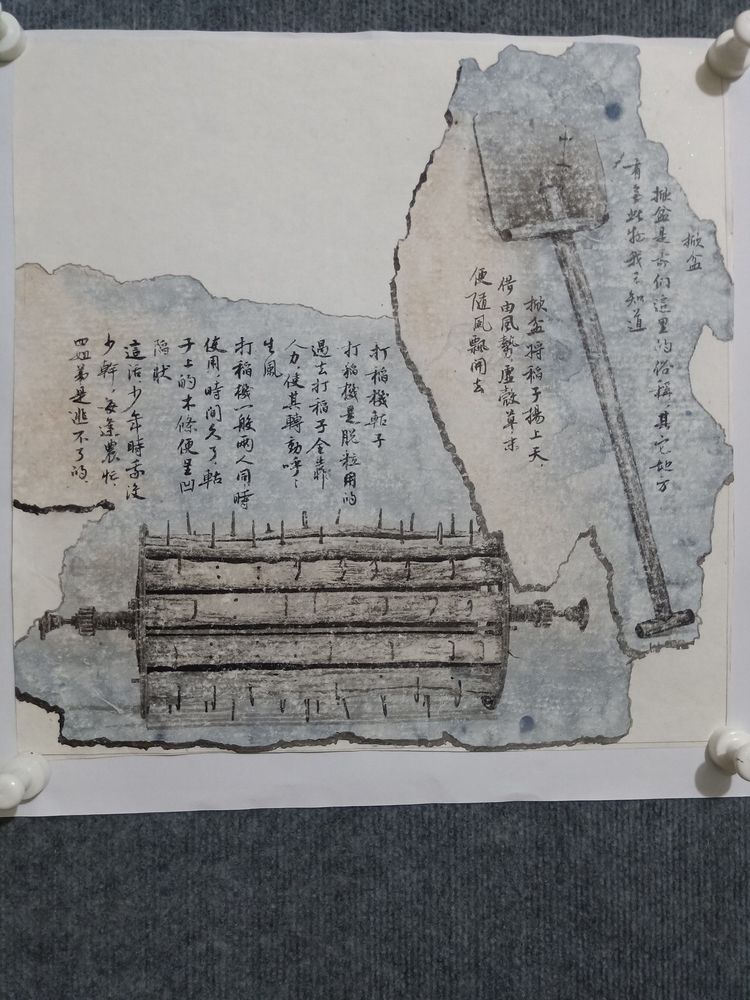 掀盆
掀盆是我们這里的俗稱其它地方
有無此物我不知道
掀盆将稻子揚上天,
借由風勢虚殻草末
便隨風飄開去
打稻機軲子
打稻機是脱粒用的
過去打稻子全靠
人力使其轉動呼呼
生風
打稻機一般兩人同時
使用,時間久了,軲
子上的木條便呈凹
陷狀
這活少年時我没
少幹,每逢農忙,
四姐弟是逃不了的,